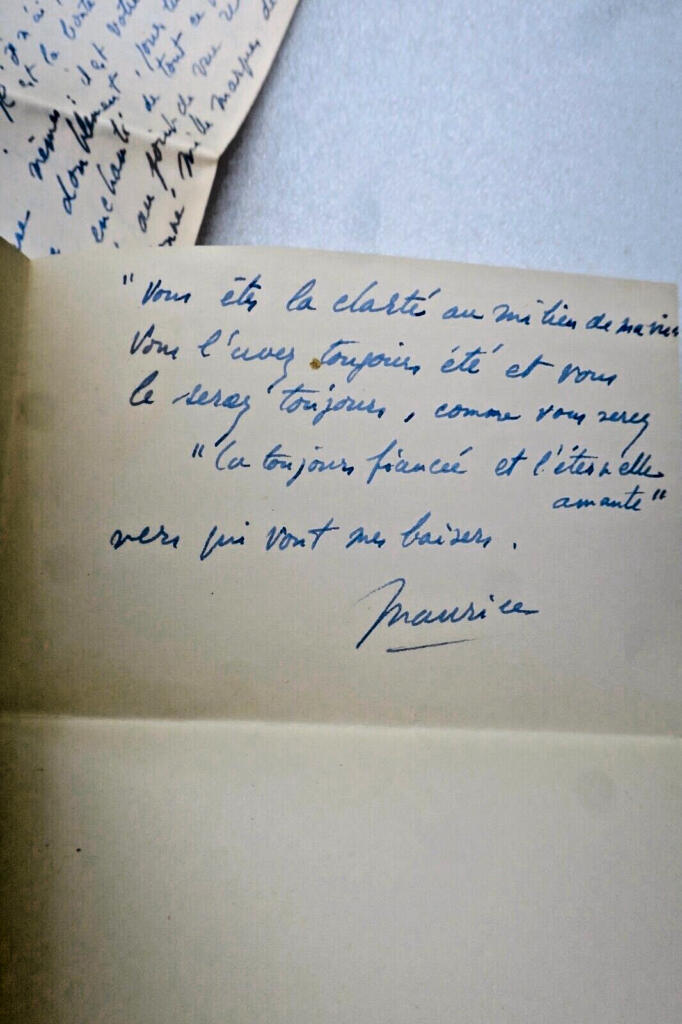 et la
mêmes : c'est votre
doublement
enchanté de tout ce
au point de vue
mille marques de
"Vous êtes la clarté au milieu de ma vie
Vous l'avez toujours été et vous
le serez toujours, comme vous serez
"la toujours fiancée et l'éternelle
amante"
vers qui vont mes baisers.
Maurice